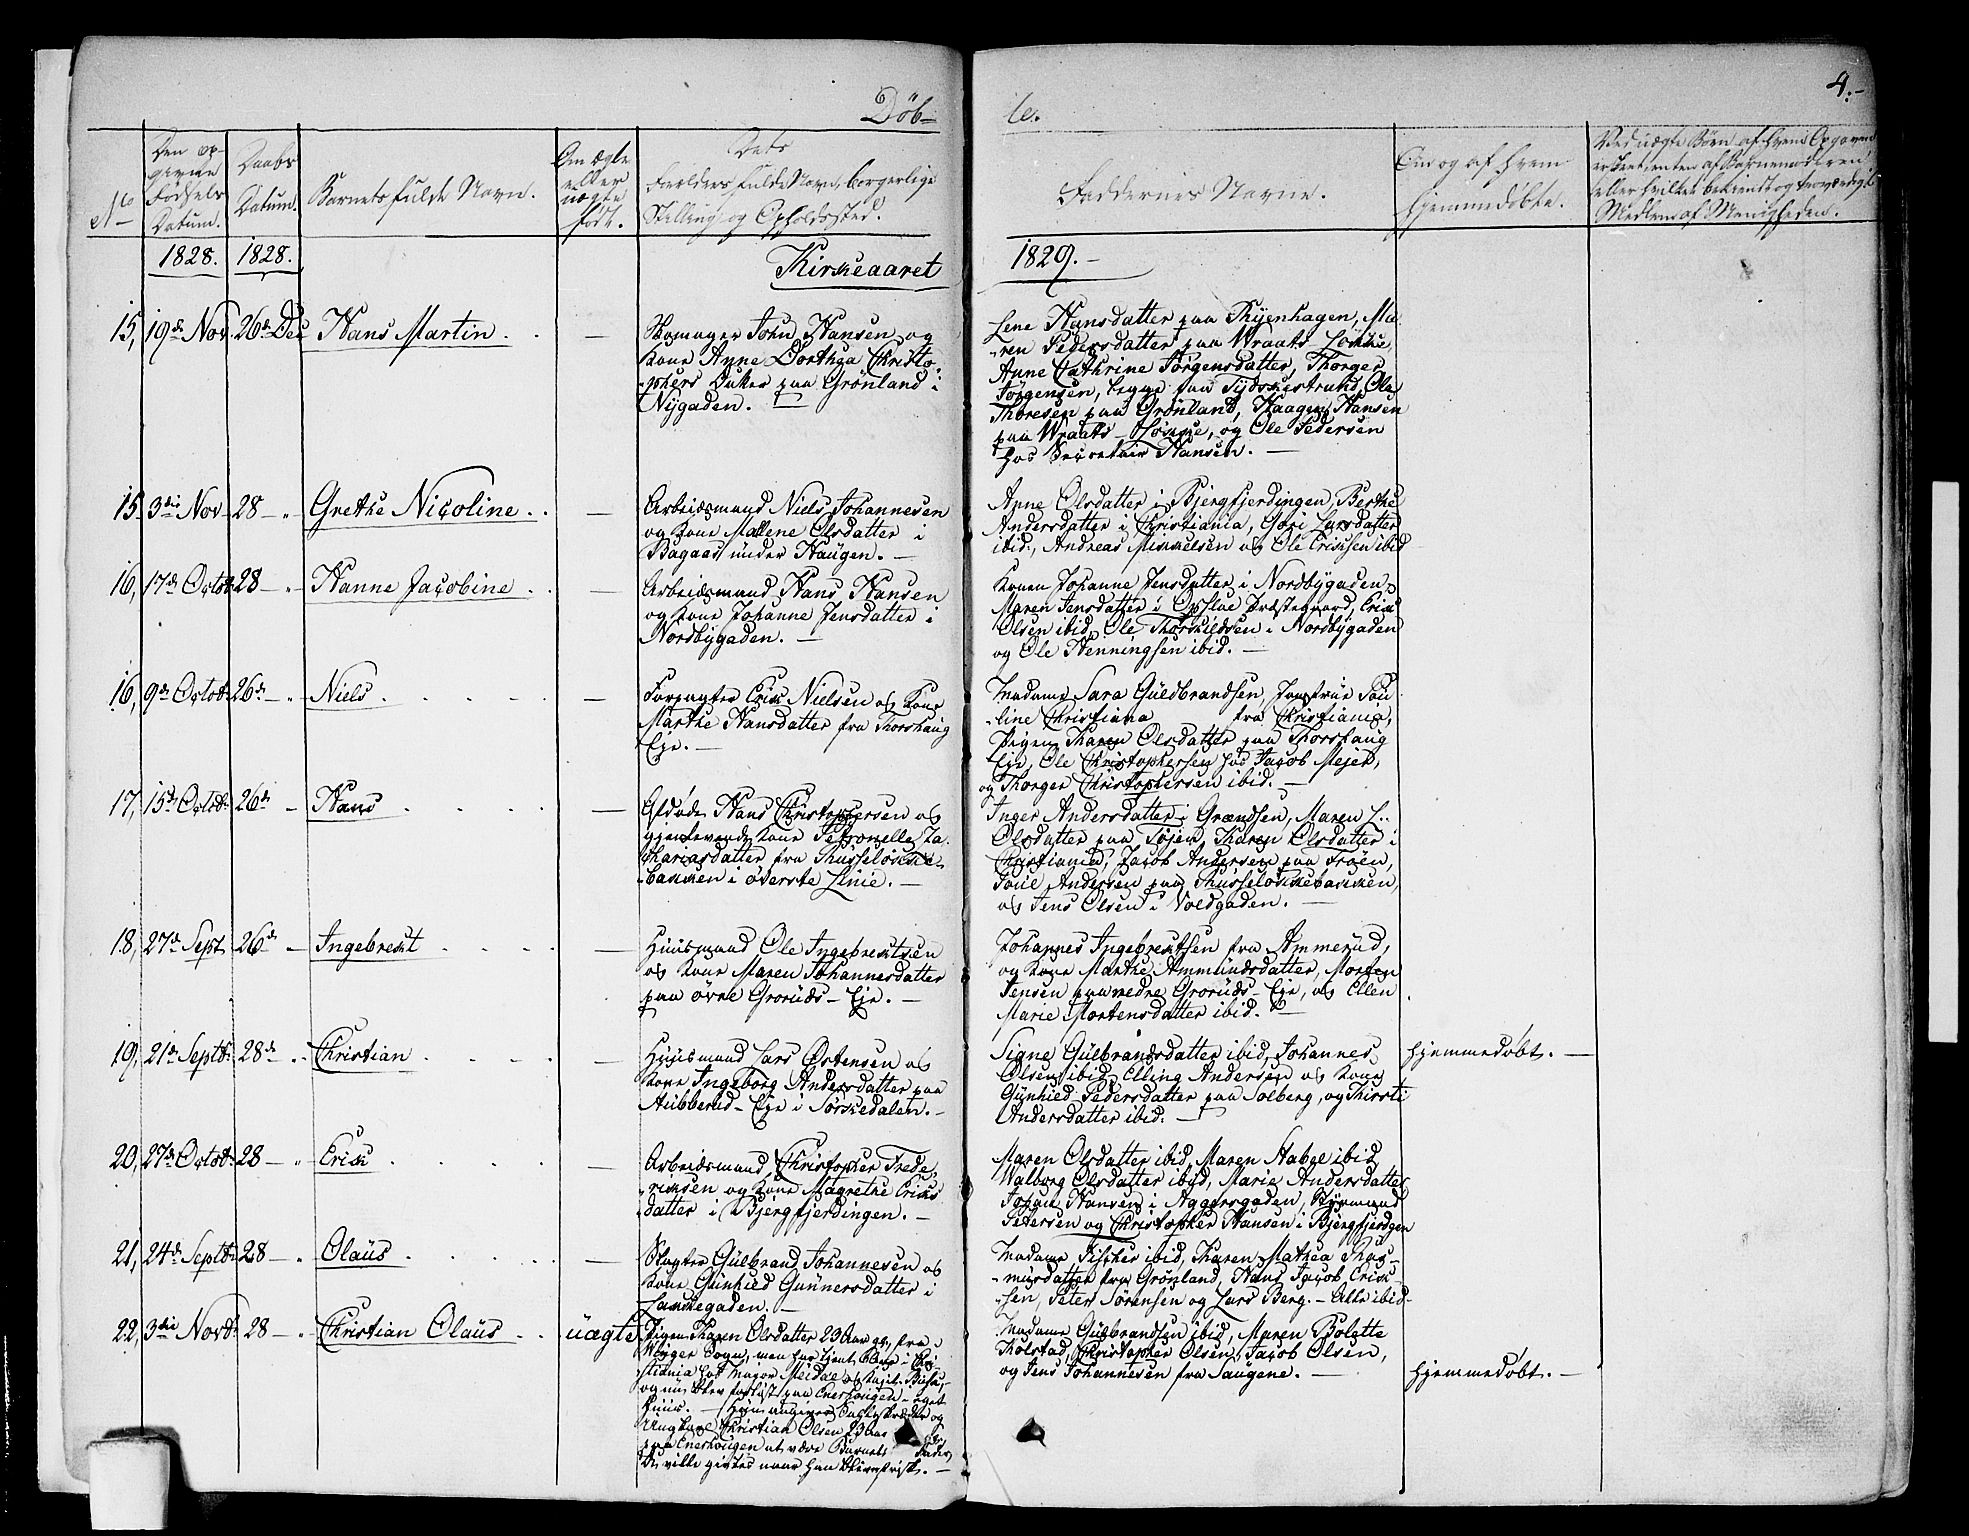 Døb-
te.
4.-
No
Den op-
givne
Fødsels
Datum.
Daabs
Datum.
Barnets fulde Navn.
Om ægte
eller
uægte
født.
Dets
Forældres fulde Navn, borgerlige
Stilling og Opholdssted.
Faddernes Navne.
Om og af hvem
hjemmedøbte.
Ved uægte Børn af hvem Opgaven
er skeet, enten af Barnemoderen
eller hvilket bekiendt og troværdigt
Medlem af Menigheden.
1828. 1828.
Kirkeaaret
1829.-
15, 19de Nov. 26de Dec Hans Martin. —
Skomager John Hansen og
Kone Anne Dorthea Christo-
-phers Datter paa Grønland i
Nygaden. —
Lene Hansdatter paa Thyenhagen, Ma-
-ren Pedersdatter paa Wraats Løkke,
Anne Cathrine Jørgensdatter, Thorger
Jørgensen, begge paa Tydskestrand, Ole
Thoresen paa Grønland, Haagen Hansen
paa Wraats-Løkke, og Ole Pedersen
hos Secretair Hansen. —
15. 3die Nov 28 — " Grethe Nicoline. . —
Arbeidsmand Niels Johannesen
og Kone Malene Olsdatter i
Bagaas under Haugen. —
Anne Olsdatter i Bjergfjerdingen, Berthe
Andersdatter i Christiania, Gori Larsdatter
ibid., Andreas Mikkelsen og Ole Eriksen ibid
16, 17de Octobr 28 — " Hanne Jacobine . —
Arbeidsmand Hans Hansen
og Kone Johanne Jensdatter i
Nordbygaden. —
Konen Johanne Jensdatter i Nordbygaden,
Maren Jensdatter i Opsloe Præstegaard, Erik
Olsen ibid, Ole Thorkildsen i Nordbygaden
og Ole Henningsen ibid. —
16, 9de Octobr 26de — " Niels . . . . —
Forpagter Erik Nielsen og Kone
Marthe Hansdatter fra Thorshaug
Eje. —
Madame Sara Guldbrandsen, Jomfrue Pau-
-line Christiana fra Christiania,
Pigen Karen Olsdatter paa Thorshaug
Eje, Ole Christophersen hos Jacob Mejer,
og Thorger Christophersen ibid. —
17, 15de Octobr 26de — Hans . . . . —
Afdøde Hans Christophersen og
gjenlevende Kone Petronelle Za-
chariasdatter fra Thusseløkke-
-bakken i øverste Linie. —
Inger Andersdatter i Grændsen, Maren L..
Olsdatter paa Tøjen, Karen Olsdatter i
Christiania, Jacob Andersen paa Frøen,
Foue Andersen paa Thusseløkkebakken,
og Jens Olsen i Voldgaden. —
18, 27de Sept. 26de — Ingebrekt . . . . —
Huusmand Ole Ingebrektsen
og Kone Maren Johannesdatter
paa øvre Groruds-Eje. —
Johannes Ingebrektsen fra Ammerud,
og Kone Marthe Ammundsdatter, Morten
Jensen paa nedre Groruds-Eje, og Ellen
Marie Mortensdatter ibid. —
19, 21de Septbr 28de — " Christian . . . . —
Huusmand Lars Østensen og
Kone Ingeborg Andersdatter paa
Hubberud-Eje i Sørkedalen. —
Signe Gulbrandsdatter ibid, Johannes
Olsen ibid, Elling Andersen og Kone
Gunhild Pedersdatter paa Solberg, og Kirsti
Andersdatter ibid. —
hjemmedøbt. —
20, 27de Octobr 28 — " Erik . . . . —
Arbeidsmand Christopher Frede-
-riksen og Kone Magrethe Eriks
datter i Bjergfjerdingen. —
Maren Olsdatter ibid, Maren Habel ibid
Walborg Olsdatter ibid, Marie Andersdatter
Johan Hansen i Aggersgaden,
Petersen og Christopher Hansen i Bjergfjerdgen
21, 24de Septbr 28 — " Olaüs . . . . —
Slagter Gulbrand Johannesen og
Kone Gunhild Gunnersdatter i
Lakkegaden. —
Madame Fischer ibid, Karen Mathea Ras-
-musdatter fra Grønland, Hans Jacob Erik-
-sen, Peter Sørensen og Lars Berg. — Alle ibid-
22, 3die Novbr 28 — " Christian Olaüs . . uægte
Pigen Karen Olsdatter 23 Aar gl, fra
Winger Sogn, men har tjent flere i Chri-
stiania hos Major Meidel og
og nu blev forløst paa Enerhougen- eget
Huus. — Hun angiver og
Ungkarl Christian Olsen 23 Aar
paa Enerhougen at være Barnets Fader,
De ville giftes naar han bliver frisk. —
Madame Gulbrandsen ibid, Maren Bolette
Kolstad, Christopher Olsen, Jacob Olsen,
og Jens Johannesen fra Saugene. —
hjemmedøbt. —